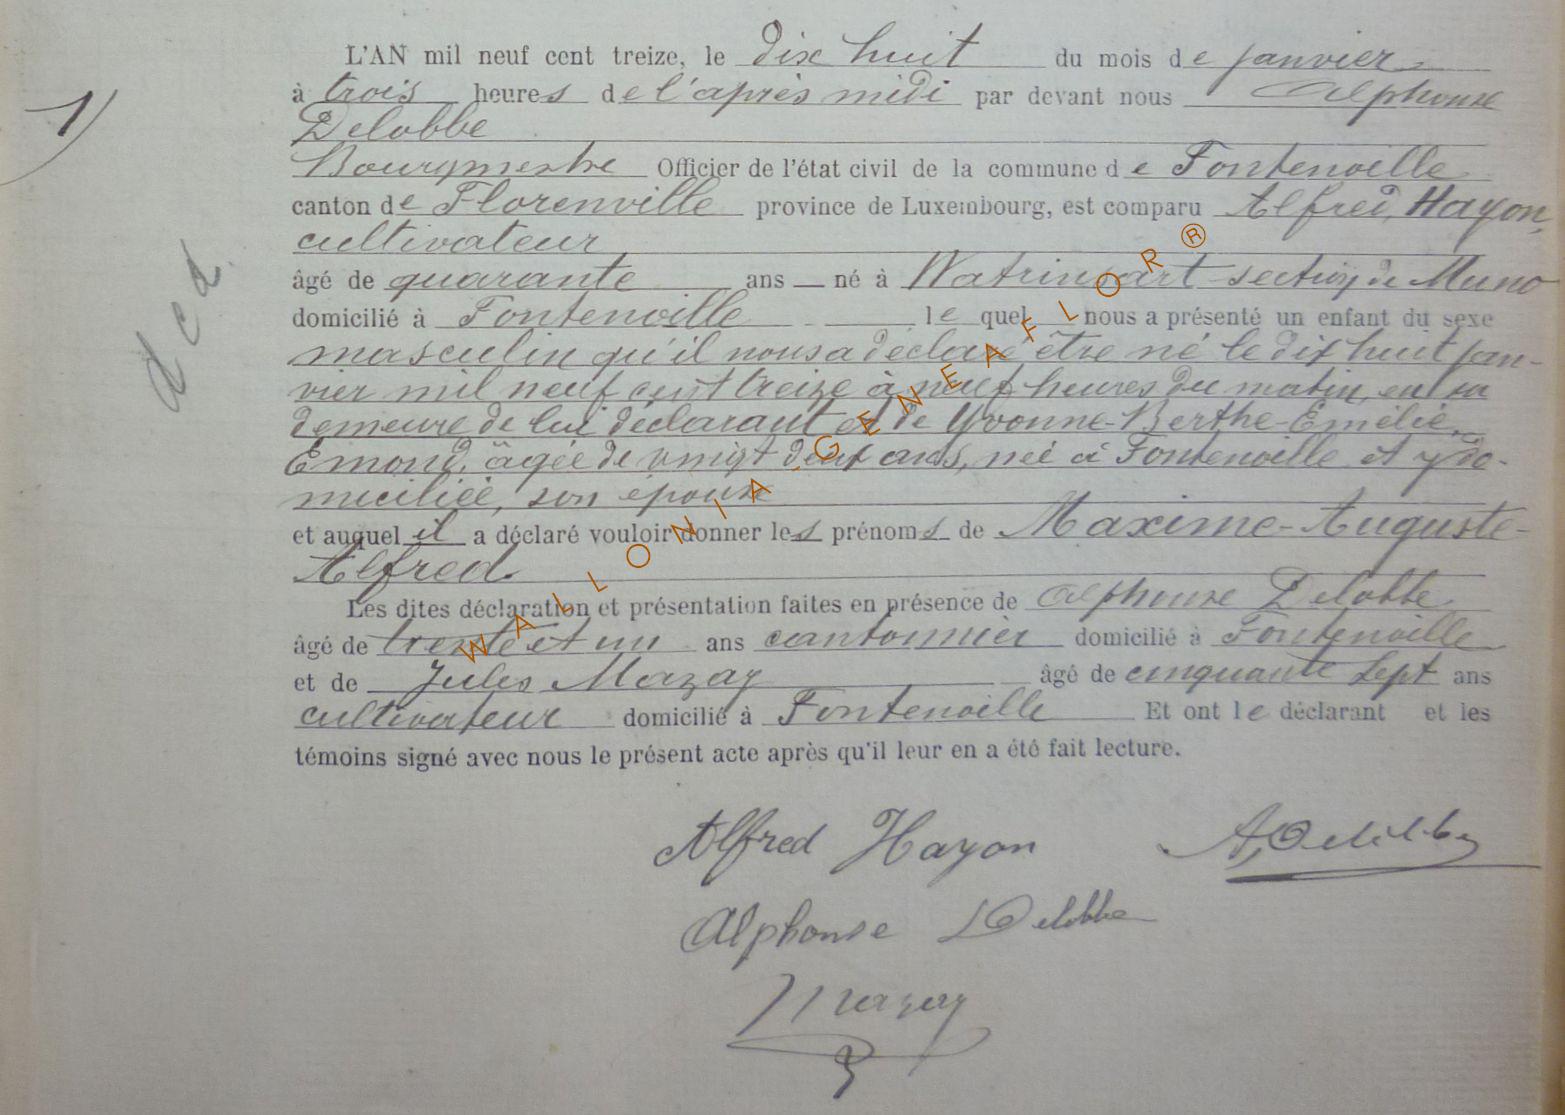 L'AN mil neuf cent treize, le dix huit du mois de janvier
1) à trois heures de l'après midi par devant nous Alphonse
Delobbe
Bourgmestre Officier de l'état civil de la commune de Fontenoille
canton de Florenville province de Luxembourg, est comparu Alfred Hayon,
cultivateur
âgé de quarante ans né à Watrinsart section de Muno
domicilié à Fontenoille lequel nous a présenté un enfant du sexe
masculin qu'il nous a déclaré être né le dix huit jan-
vier mil neuf cent treize à neuf heures du matin, en sa
demeure de lui déclarant et de Yvonne-Berthe-Emélie,
Emond, âgée de vingt deux ans, née à Fontenoille et y do-
miciliée, son épouse
et auquel il a déclaré vouloir donner les prénoms de Maxime-Auguste-
Alfred
Les dites déclaration et présentation faites en présence de Alphonse Delobbe
âgé de trente et un ans cantonnier domicilié à Fontenoille
et de Jules Mazay âgé de cinquante sept ans
cultivateur domicilié à Fontenoille Et ont le déclarant et les
témoins signé avec nous le présent acte après qu'il leur en a été fait lecture.
dcd
Alfred Hayon A, Delobbe
Alphonse Delobbe
Mazay
WALLONIA-GENEAFLOR®